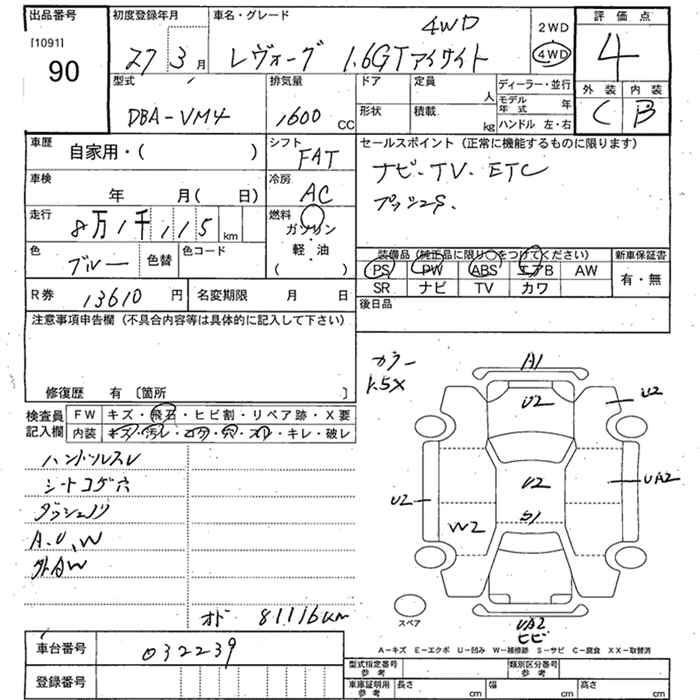 出品番号 初度登録年月 車名・グレード 評価点
[1091] 90
27 3月 レヴォーグ 1.6GTアイサイト 4WD
2WD
4WD
4
型式 排気量 ドア 定員 人 ディーラー・並行 外装 内装
DBA-VM4 1600 CC 形状 積載 kg モデル年式 年 C B
ハンドル 左・右
車歴 自家用・( ) シフト FAT セールスポイント(正常に機能するものに限ります)
ナビ・TV・ETC
車検 年 月( 日) 冷房 AC
プッシュS.
走行 8万1千115km 燃料 ガソリン・軽・油( )
色 ブルー 色替 色コード
装備品(純正品に限り○をつけてください) 新車保証書
PS PW ABS エアB AW 有・無
SR ナビ TV カワ
R券 13610円 名変期限 月 日 後日品
注意事項申告欄(不具合内容等は具体的に記入して下さい)
修復歴 有〔箇所 〕
検査員記入欄 FW キズ・飛石・ヒビ割・リペア跡・X要
内装 キズ・汚レ・コゲ・穴・スレ・キレ・破レ
ハンドルスレ
シートコゲ穴
A.U.W
外AW
オド 81116km
カラー
1.5X
A1
U2
U2
U2
UA2
U2
S1
W2
UA2
ヒビ
スペア
A-キズ E-エクボ U-凹み W-補修跡 S-サビ C-腐食 XX-取替済
車台番号 032239
登録番号
型式指定番号 参考 類別区分番号 参考
車庫証明用 参考 長さ cm 幅 cm 高さ cm